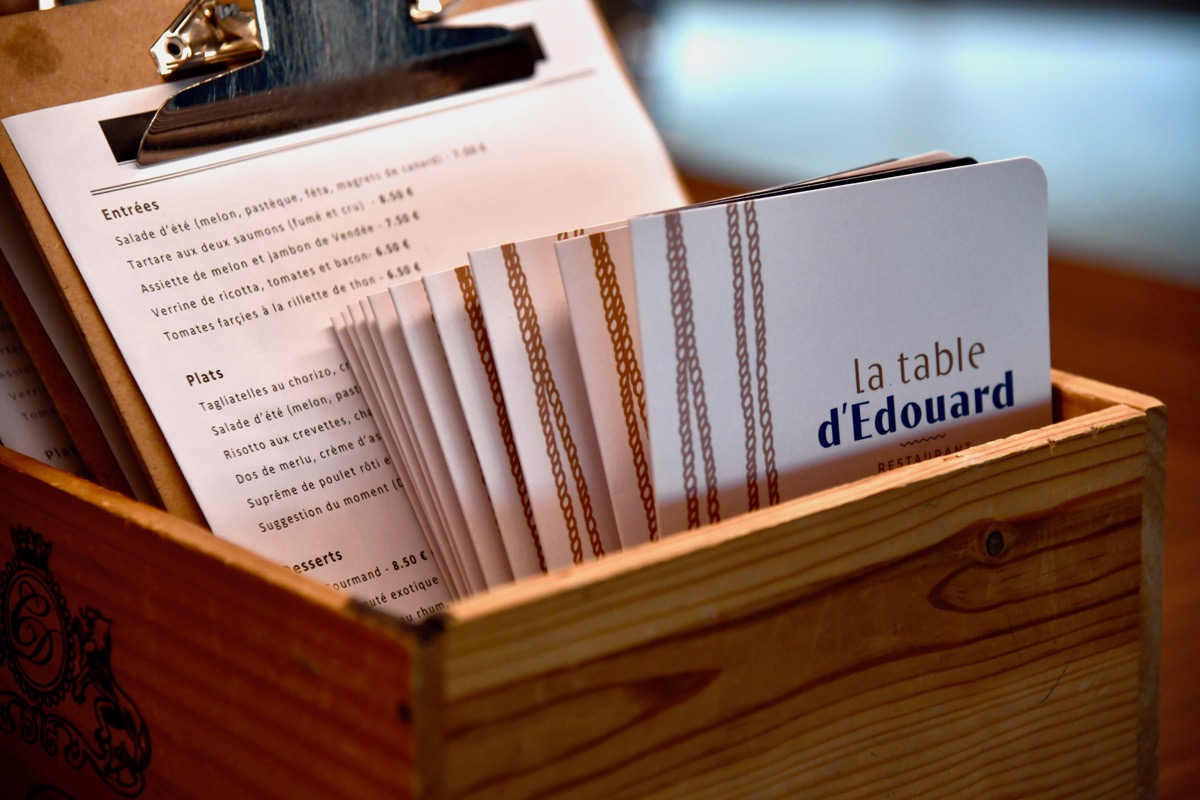 Entrées
Salade d'été (melon, pastèque, féta, magrets de canard) - 7.00 €
Tartare aux deux saumons (fumé et cru) - 8.50 €
Assiette de melon et jambon de Vendée - 7.50 €
Verrine de ricotta, tomates et bacon- 6.50 €
Tomates farçies à la rillette de thon - 6.50 €
Plats
Tagliatelles au chorizo, cr
Salade d'été (melon, past
Risotto aux crevettes, cha
Dos de merlu, crème d'as
Suprême de poulet rôti e
Suggestion du moment (D
esserts
ourmand - 8.50 €
uté exotique
u rhum
la table
d'Edouard
RESTAURANT